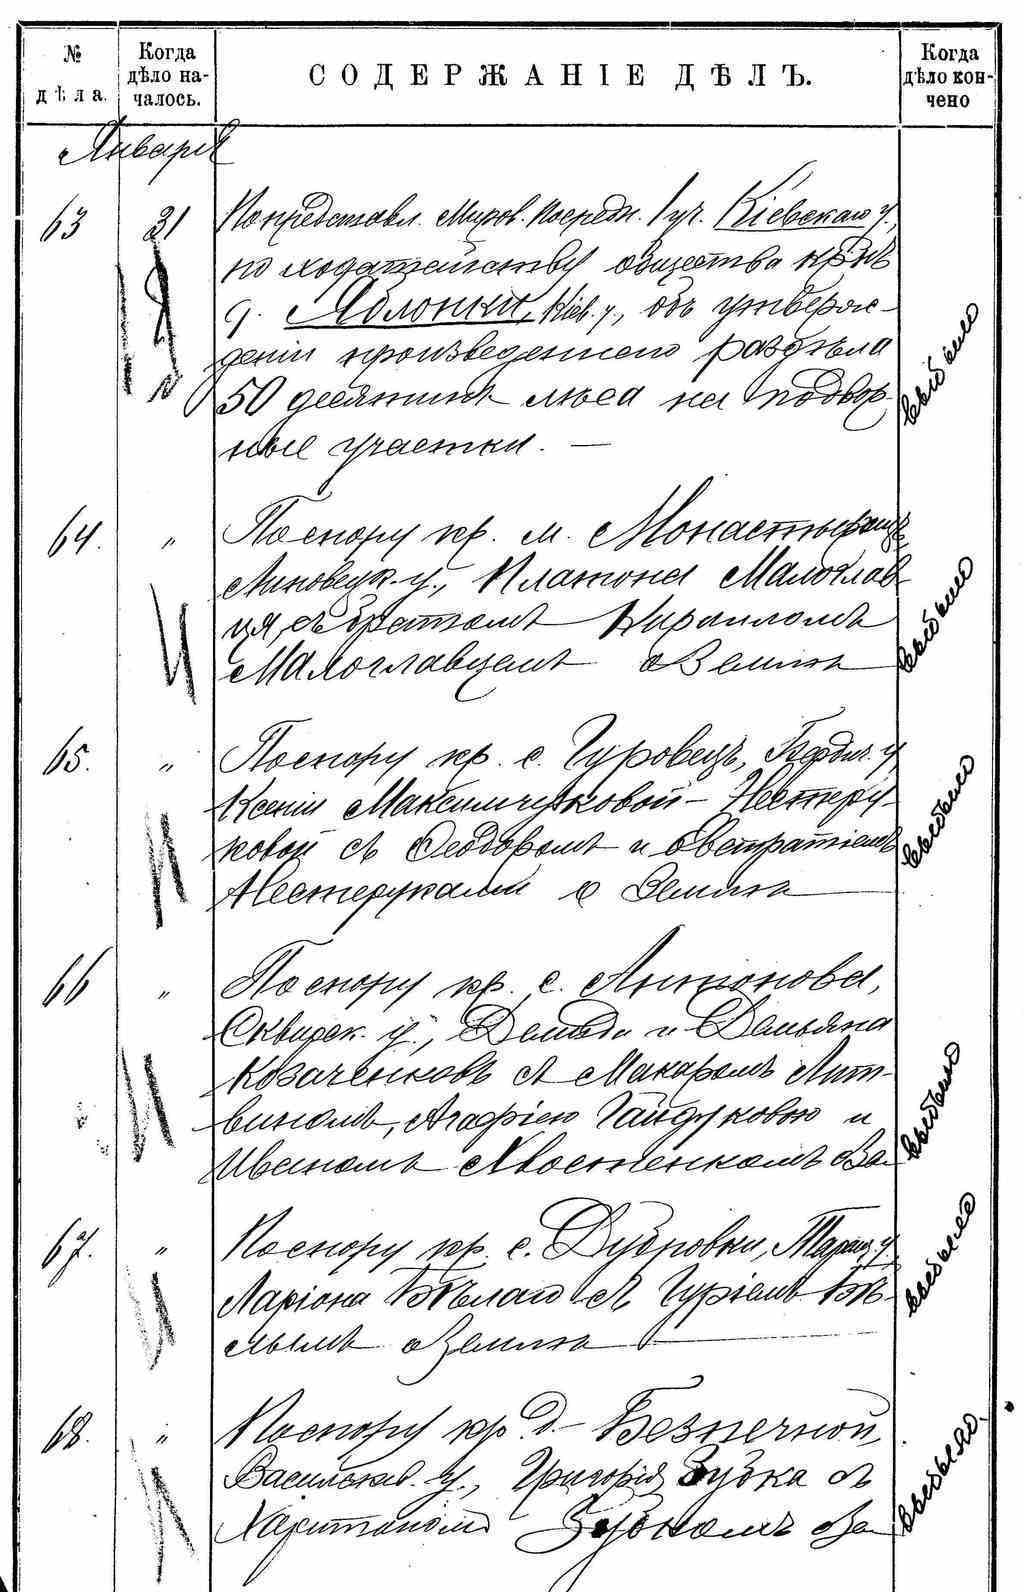 № дѣла.
Когда дѣло началось.
СОДЕРЖАНІЕ ДѢЛЪ.
Когда дѣло кончено
Января
63 31 По представл. Миров. Посредн. 1 уч. Кіевскаго у.,
по ходатайству общества крнъ
д. Яблонки, Кіев. у., объ утверж-
деніи произведеннаго раздѣла
50 десятинъ лѣса на подвор-
ные участки. —
выбыло
64. " По спору кр. м. Монастырищъ
Липовецк. у., Платона Малоглав-
ця, съ братомъ Кирилломъ
Малоглавцемъ о землѣ
выбыло
65. " По спору кр. с. Гуровецъ, Бердич. у.
Ксеніи Максимчуковой - Нестеру-
ковой съ Ѳеодоромъ и Евстратіемъ
Нестеруками о землѣ
выбыло
66 " По спору кр. с. Антонова,
Сквирск. у., и Демьяна
Козаченковъ съ Макаромъ Лит-
виномъ, Агафіею Гайдуковою и
Иваномъ Хвостенкомъ о зе
выбыло
67. " По спору кр. с. Дубровки, Таращ. у.
Ларіона Бѣлаго съ Гуріемъ Бѣ-
лымъ о землѣ
выбыло
68. " По спору кр д. Безпечной,
Васильков. у., Григорія Зубка съ
Харитономъ Зубкомъ о зе
выбыло